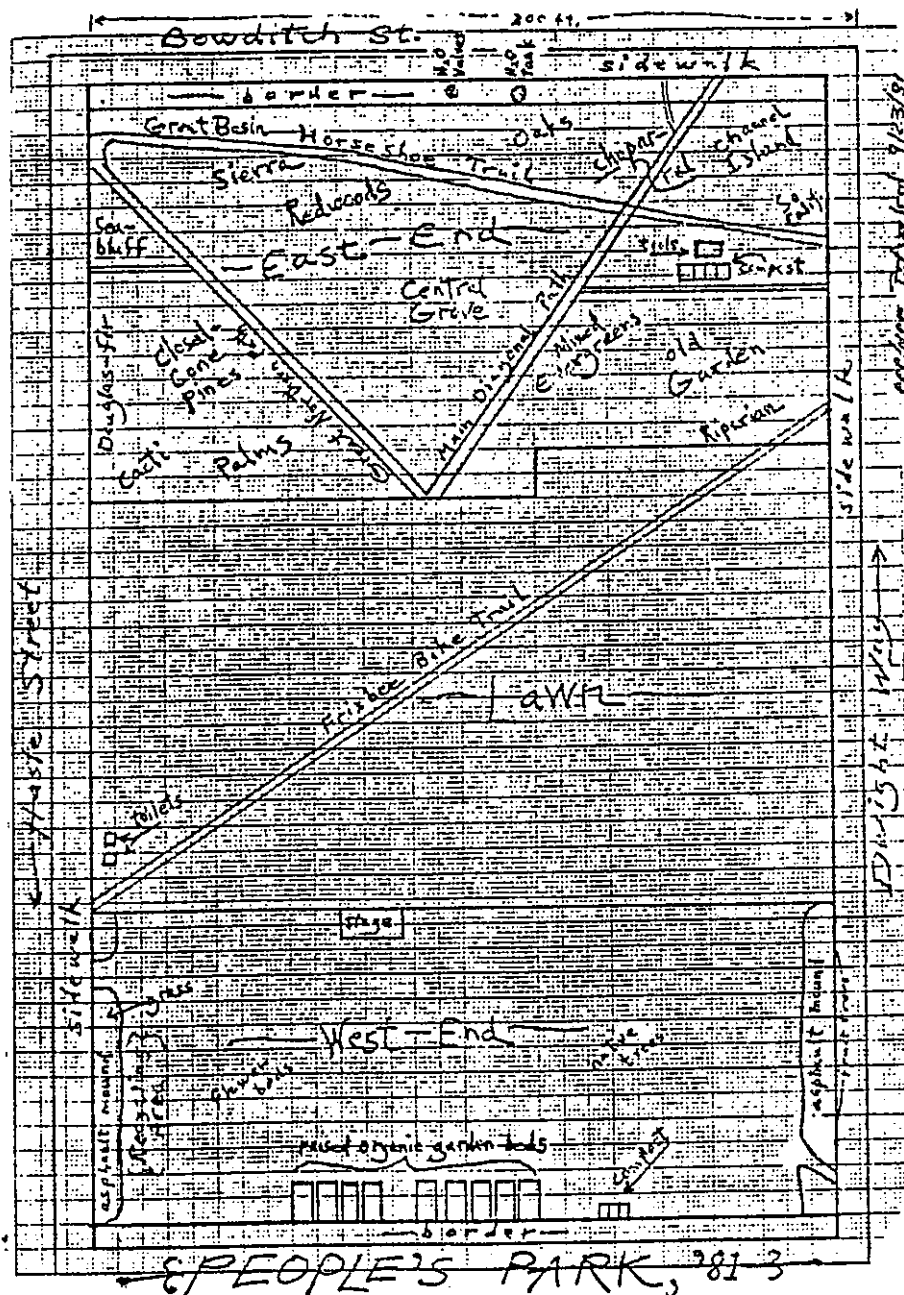 200 ft.
Bowditch St.
H2O Valves
H2O Tank
sidewalk
border
Great Basin
Horseshoe Trail
Oaks
Chapar-
ral
Channel
Island
Sierra
Redwoods
Sea-
bluff
East-End
Central
Grove
Compost
Main Diagonal Path
Mixed
Evergreens
Old
Garden
Douglas-fir
Closed-
Cone
Pines
Cacti
Palms
Riparian
sidewalk
Haste Street
Dwight Way
Frisbee Bike Trail
Lawn
toilets
sidewalk
Stage
grass
West-End
native
trees
asphalt mound
Area
asphalt mound
fruit trees
raised organic garden beds
compost
border
PEOPLE'S PARK, '81-3